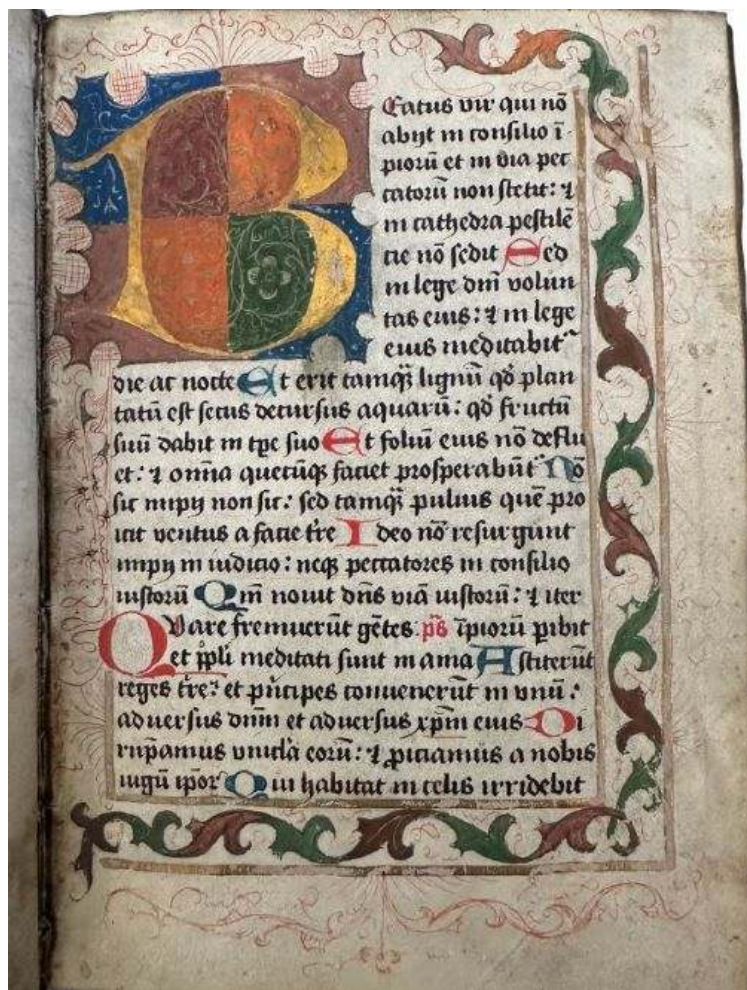 Beatus vir qui nō
abijt in consilio ī-
piorū et in via pec
catorū non stetit: ⁊
in cathedra pestilē
cie nō sedit Sed
in lege dn̄i volun
tas eius: ⁊ in lege
eius meditabit᷑
die ac nocte Et erit tamqȝ̄ lignū qd̄ plan
tatū est secus decursus aquarū: qd̄ fructū
suū dabit in tp̄e suo Et foliū eius nō deflu
et: ⁊ om̄ia quecūqȝ faciet prosperabūt᷑ Nō
sic impij non sic: sed tamqȝ̄ puluis quē pro
icit ventus a facie tr̄e Ideo nō resurgunt
impij in iudicio: neqȝ peccatores in consilio
iustorū Qm̄ nouit dn̄s viā iustorū: ⁊ iter
Quare fremuerūt gētes: ps̄ īpiorū ꝑibit
et ppl̄i meditati sunt inania Astiterūt
reges tr̄e: et pn̄cipes conuenerūt in vnū:
aduersus dn̄m et aduersus xp̄m eius Di
rūpamus vincl̄a eorū: ⁊ ꝓiciamus a nobis
iugū ipor᷑ Qui habitat in celis irridebit